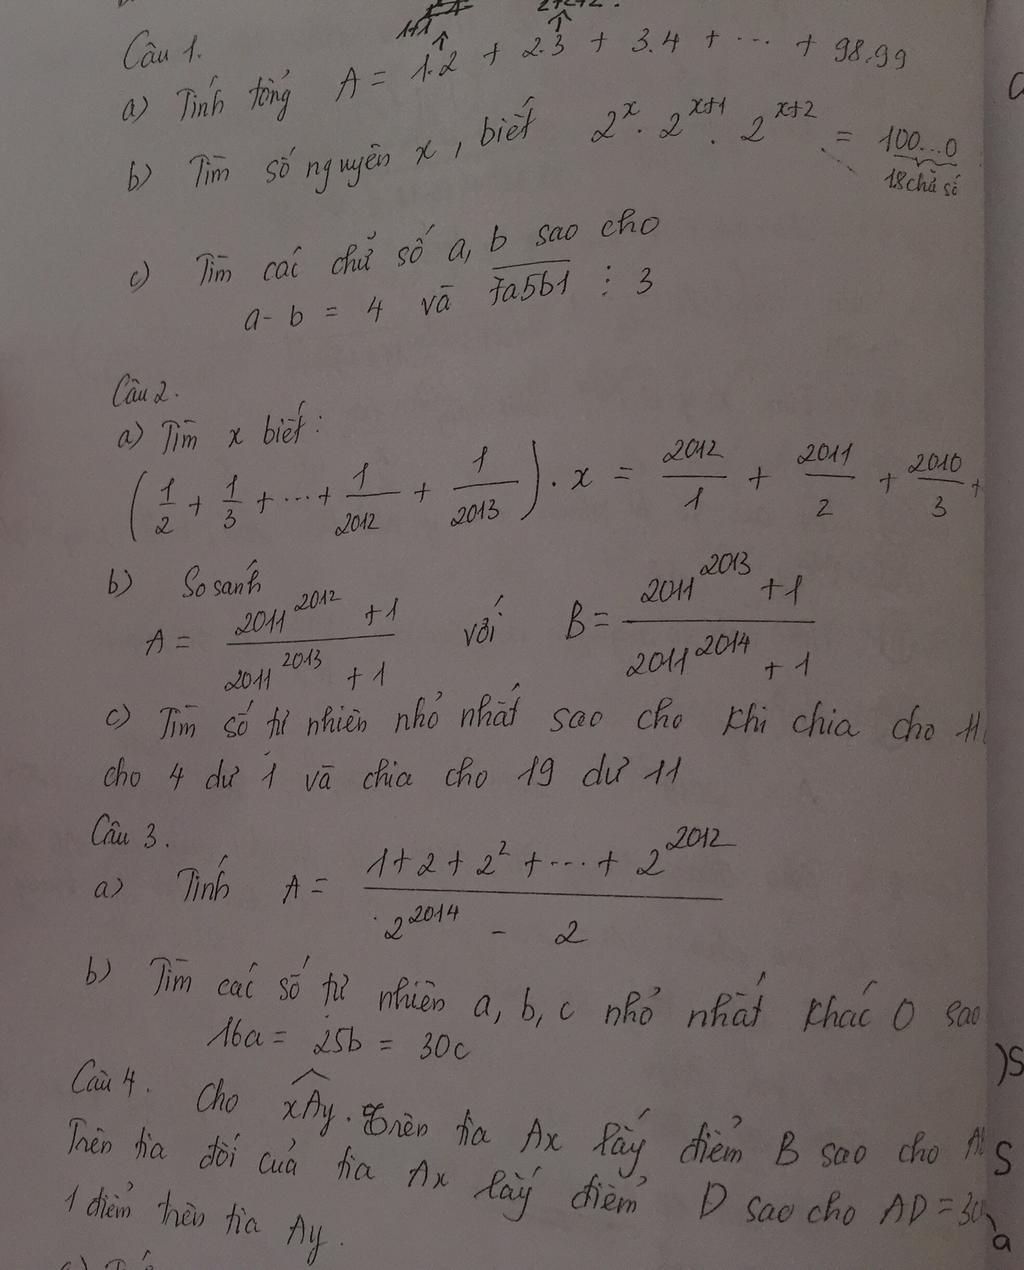 Câu 1.
a) Tính tổng A = 1.2 + 2.3 + 3.4 + ... + 98.99
b) Tìm số nguyên x, biết 2^x . 2^{x+1} . 2^{x+2} = 100...0
18 chữ số
c) Tìm các chữ số a, b sao cho
a - b = 4 và 7a5b1 ⋮ 3
Câu 2.
a) Tìm x biết:
(1/2 + 1/3 + ... + 1/2012 + 1/2013) . x = 2012/1 + 2011/2 + 2010/3 +
b) So sánh
A = (2011^2012 + 1)/(2011^2013 + 1) với B = (2011^2013 + 1)/(2011^2014 + 1)
c) Tìm số tự nhiên nhỏ nhất sao cho khi chia cho 11
cho 4 dư 1 và chia cho 19 dư 11
Câu 3.
a) Tính A = (1 + 2 + 2^2 + ... + 2^2012)/(2^2014 - 2)
b) Tìm các số tự nhiên a, b, c nhỏ nhất khác 0 sao
16a = 25b = 30c
Câu 4. Cho xAy. Trên tia Ax lấy điểm B sao cho
Trên tia đối của tia Ax lấy điểm D sao cho AD = 30
1 điểm trên tia Ay.